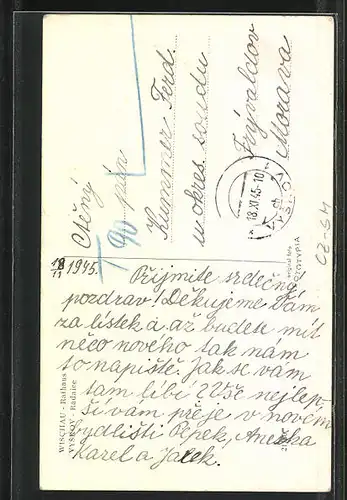 Ctěný
pán
Kummer Ferd.
u okres. soudu
Frývaldov
Morava
18.XI.45-10
VYŠKOV
90
T
18/11 1945.
Přijmite srdečný
pozdrav! Děkujeme Vám
za lístek a až budete mít
něco nového tak nám
to napište. Jak se vám
tam líbí? Vše nejlep-
ší vám přeje v novém
bydlišti Pepek, Anežka
Karel a Jarek.
WISCHAU - Rathaus
VYŠKOV - Radnice
original foto
FOTOTYPIA